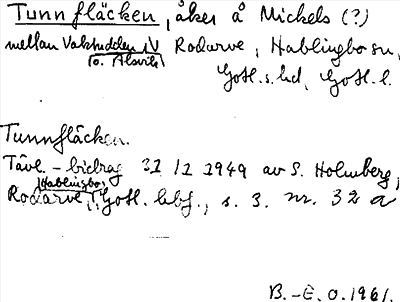 Tunnfläcken, åker å Mickels (?)
mellan Vaktudden V Rodarve, Hablingbo sn,
o. Alsvik
Gotl. s. hd, Gotl. l.
Tunnfläcken.
Tävl.-bidrag 31 12 1949 av S. Holmberg,
Hablingbo,
Rodarve, Gotl. hbf., s. 3. nr. 32 a
B.-E. O. 1961.